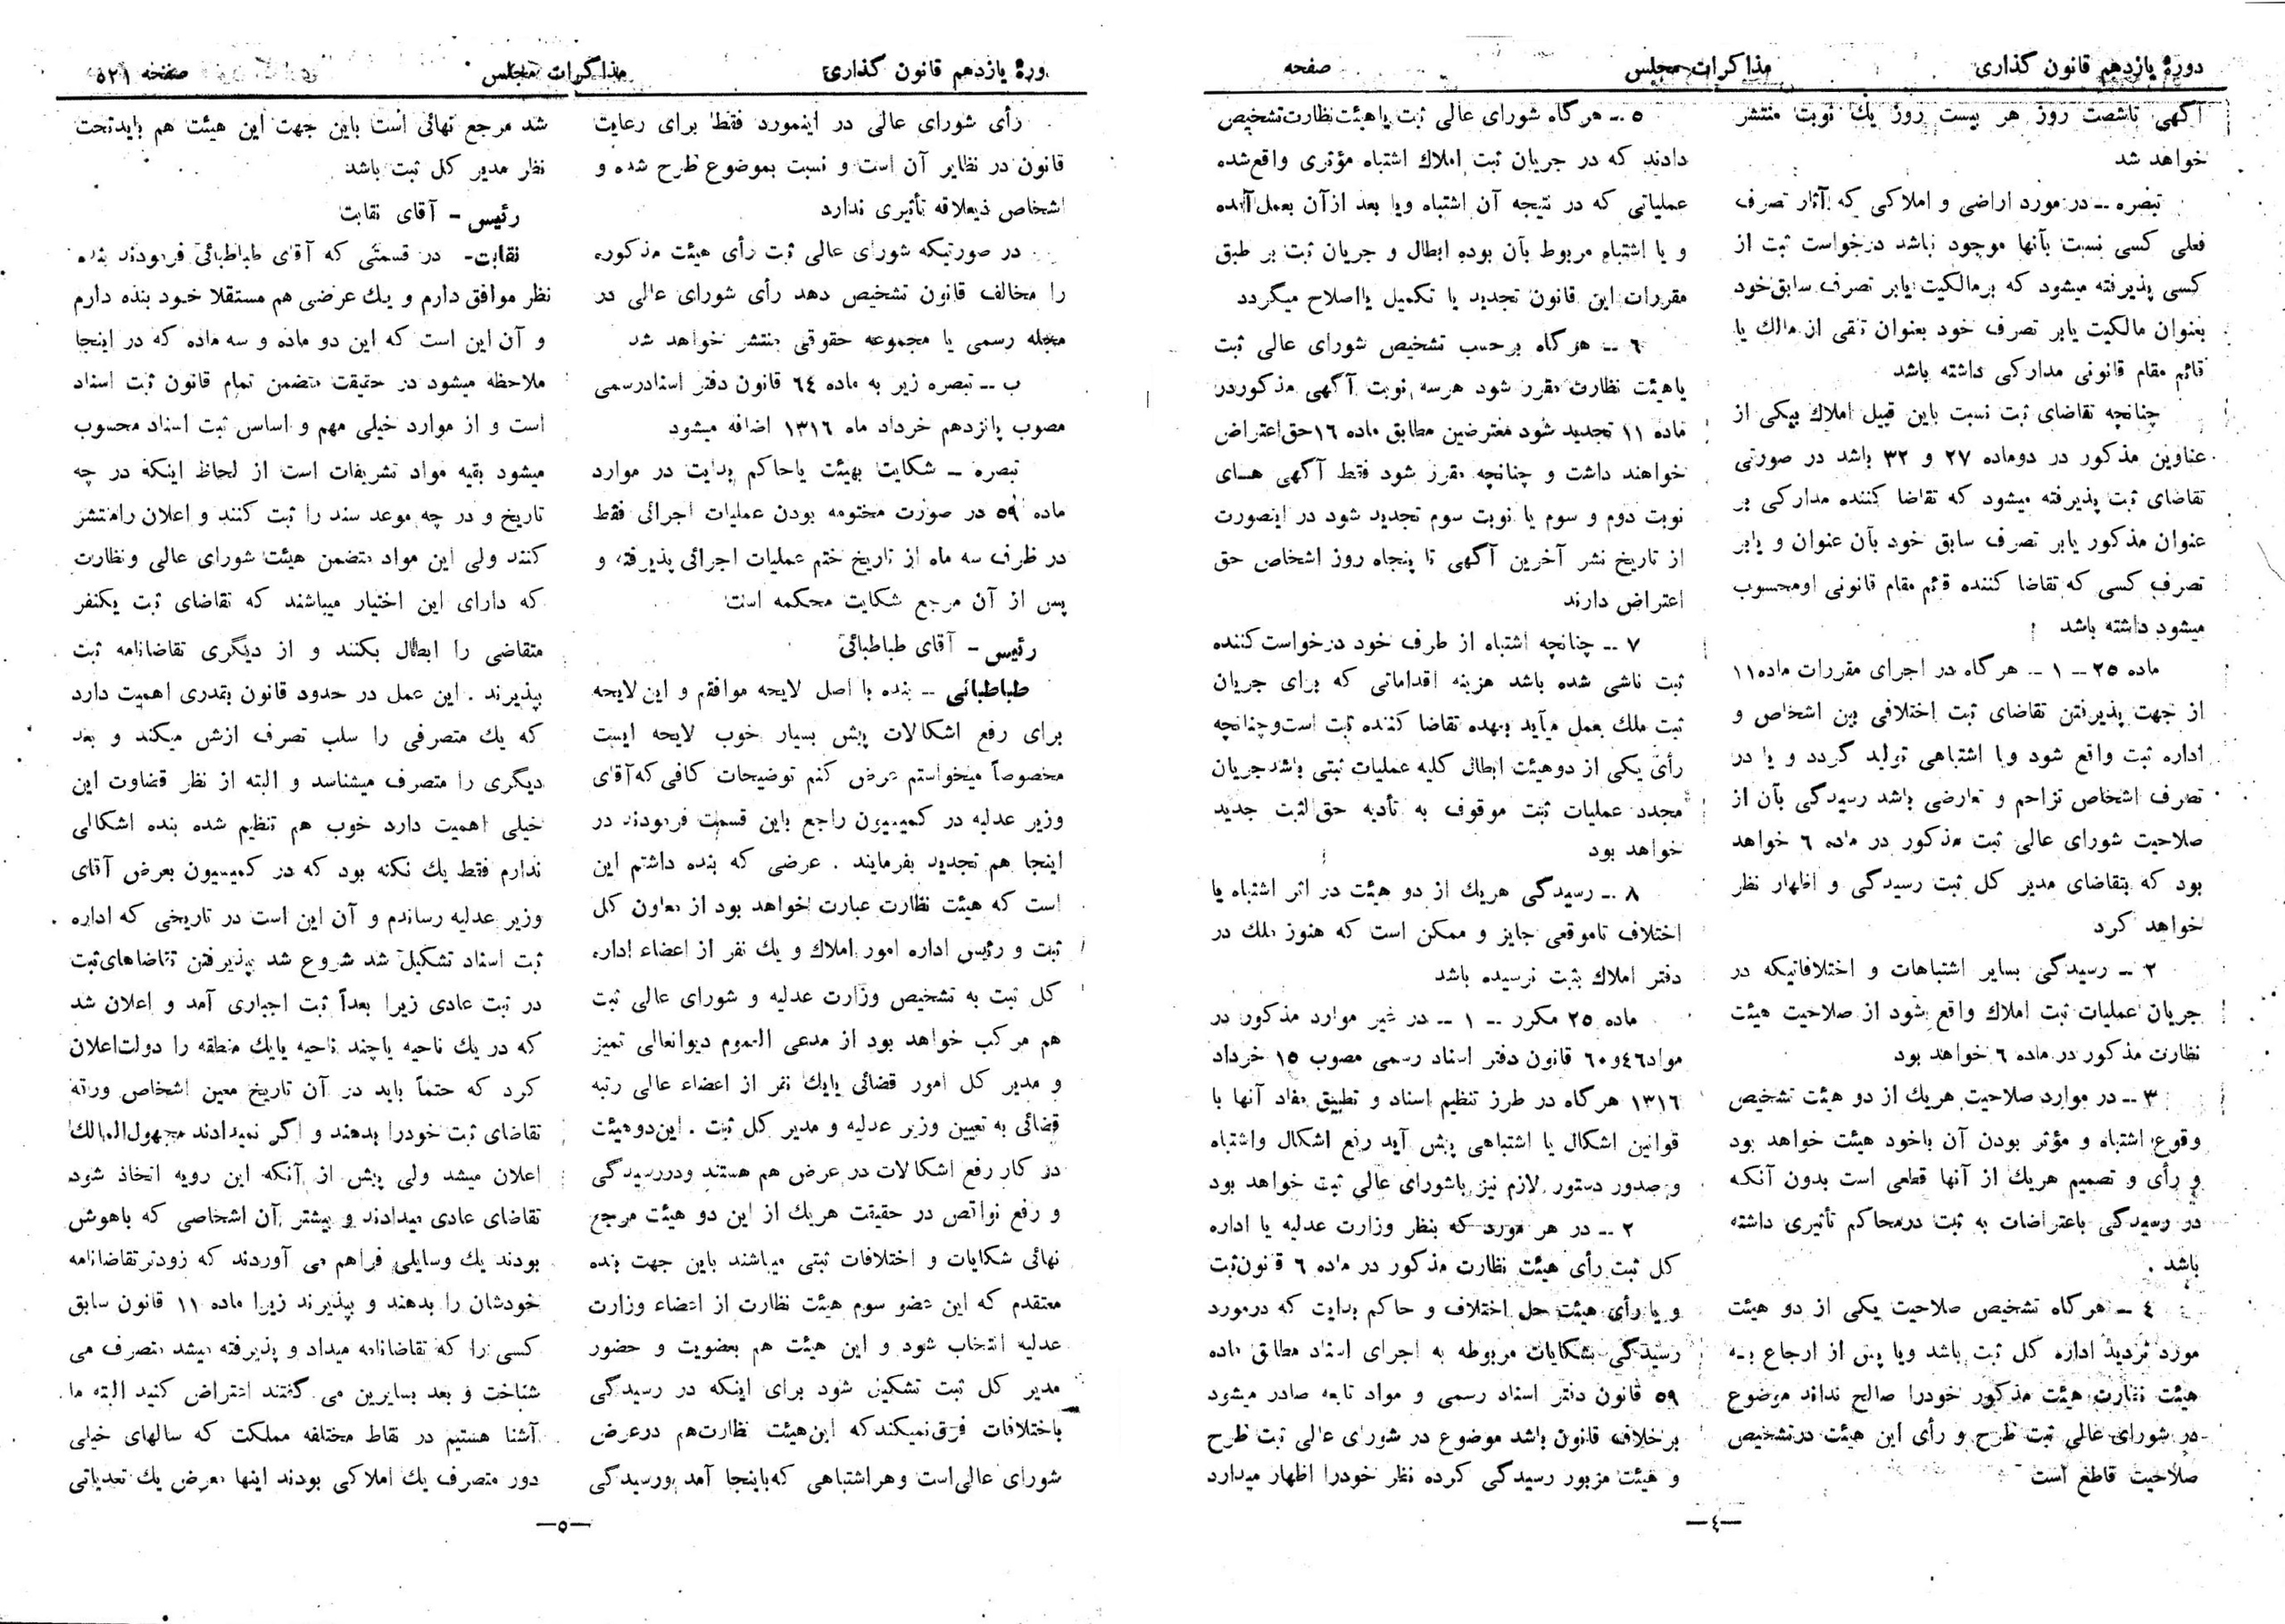 دورهٔ یازدهم قانون گذاری
مذاکرات مجلس
صفحه
آگهی تاشصت روز هر بیست روز یك نوبت منتشر
خواهد شد
تبصره ــ در مورد اراضی و املاکی که آثار تصرف
فعلی کسی نسبت بآنها موجود نباشد درخواست ثبت از
کسی پذیرفته میشود که برمالکیت یابر تصرف سابق خود
بعنوان مالکیت یابر تصرف خود بعنوان تلقی از مالك یا
قائم مقام قانونی مدارکی داشته باشد
چنانچه تقاضای ثبت نسبت باین قبیل املاك بیکی از
عناوین مذکور در دوماده ۲۷ و ۳۲ باشد در صورتی
تقاضای ثبت پذیرفته میشود که تقاضا کننده مدارکی بر
عنوان مذکور یابر تصرف سابق خود بآن عنوان و یابر
تصرف کسی که تقاضا کننده قائم مقام قانونی اومحسوب
میشود داشته باشد
ماده ۲۵ ــ ۱ ــ هرگاه در اجرای مقررات ماده ۱۱
از جهت پذیرفتن تقاضای ثبت اختلافی بین اشخاص و
اداره ثبت واقع شود ویا اشتباهی تولید گردد و یا در
تصرف اشخاص تزاحم و تعارضی باشد رسیدگی بآن از
صلاحیت شورای عالی ثبت مذکور در ماده ٦ خواهد
بود که بتقاضای مدیر کل ثبت رسیدگی و اظهار نظر
خواهد کرد
۲ ــ رسیدگی بسایر اشتباهات و اختلافاتیکه در
جریان عملیات ثبت املاك واقع شود از صلاحیت هیئت
نظارت مذکور در ماده ٦ خواهد بود
۳ ــ در موارد صلاحیت هریك از دو هیئت تشخیص
وقوع اشتباه و مؤثر بودن آن باخود هیئت خواهد بود
و رأی و تصمیم هریك از آنها قطعی است بدون آنکه
در رسیدگی باعتراضات به ثبت درمحاکم تأثیری داشته
باشد .
٤ ــ هرگاه تشخیص صلاحیت یکی از دو هیئت
مورد تردید اداره کل ثبت باشد ویا پس از ارجاع به
هیئت نظارت هیئت مذکور خودرا صالح نداند موضوع
در شورای عالی ثبت طرح و رأی این هیئت درتشخیص
صلاحیت قاطع است
٥ ــ هرگاه شورای عالی ثبت یاهیئت نظارت تشخیص
دادند که در جریان ثبت املاك اشتباه مؤثری واقع شده
عملیاتی که در نتیجه آن اشتباه ویا بعد ازآن بعمل آمده
و یا اشتباه مربوط بآن بوده ابطال و جریان ثبت بر طبق
مقررات این قانون تجدید یا تکمیل یااصلاح میگردد
٦ ــ هرگاه برحسب تشخیص شورای عالی ثبت
یاهیئت نظارت مقرر شود هرسه نوبت آگهی مذکوردر
ماده ۱۱ تجدید شود معترضین مطابق ماده ۱٦ حق اعتراض
خواهند داشت و چنانچه مقرر شود فقط آگهی های
نوبت دوم و سوم یا نوبت سوم تجدید شود در اینصورت
از تاریخ نشر آخرین آگهی تا پنجاه روز اشخاص حق
اعتراض دارند
۷ ــ چنانچه اشتباه از طرف خود درخواست کننده
ثبت ناشی شده باشد هزینه اقداماتی که برای جریان
ثبت ملك بعمل میآید بعهده تقاضا کننده ثبت است وچنانچه
رأی یکی از دوهیئت ابطال کلیه عملیات ثبتی باشد جریان
مجدد عملیات ثبت موقوف به تأدیه حق الثبت جدید
خواهد بود
۸ ــ رسیدگی هریك از دو هیئت در اثر اشتباه یا
اختلاف تاموقعی جایز و ممکن است که هنوز ملك در
دفتر املاك بثبت نرسیده باشد
ماده ۲۵ مکرر ــ ۱ ــ در غیر موارد مذکور در
مواد٤٦و٦۰ قانون دفتر اسناد رسمی مصوب ۱۵ خرداد
۱۳۱٦ هرگاه در طرز تنظیم اسناد و تطبیق مفاد آنها با
قوانین اشکال یا اشتباهی پیش آید رفع اشکال واشتباه
و صدور دستور لازم نیز باشورای عالی ثبت خواهد بود
۲ ــ در هر مورد که بنظر وزارت عدلیه یا اداره
کل ثبت رأی هیئت نظارت مذکور در ماده ٦ قانون ثبت
و یا رأی هیئت حل اختلاف و حاکم بدایت که درمورد
رسیدگی بشکایات مربوطه به اجرای اسناد مطابق ماده
٥۹ قانون دفتر اسناد رسمی و مواد تابعه صادر میشود
برخلاف قانون باشد موضوع در شورای عالی ثبت طرح
و هیئت مزبور رسیدگی کرده نظر خودرا اظهار میدارد
ــ٤ــ
دوره یازدهم قانون گذاری
مذاکرات مجلس
صفحه ٥۲۱
رأی شورای عالی در اینمورد فقط برای رعایت
قانون در نظایر آن است و نسبت بموضوع طرح شده و
اشخاص ذیعلاقه تأثیری ندارد
در صورتیکه شورای عالی ثبت رأی هیئت مذکوره
را مخالف قانون تشخیص دهد رأی شورای عالی در
مجله رسمی یا مجموعه حقوقی منتشر خواهد شد
ب ــ تبصره زیر به ماده ٦٤ قانون دفتر اسنادرسمی
مصوب پانزدهم خرداد ماه ۱۳۱٦ اضافه میشود
تبصره ــ شکایت بهیئت یاحاکم بدایت در موارد
ماده ٥۹ در صورت مختومه بودن عملیات اجرائی فقط
در ظرف سه ماه از تاریخ ختم عملیات اجرائی پذیرفته و
پس از آن مرجع شکایت محکمه است
رئیس ــ آقای طباطبائی
طباطبائی ــ بنده با اصل لایحه موافقم و این لایحه
برای رفع اشکالات پیش بسیار خوب لایحه ایست
مخصوصاً میخواستم عرض کنم توضیحات کافی که آقای
وزیر عدلیه در کمیسیون راجع باین قسمت فرمودند در
اینجا هم تجدید بفرمایند . عرضی که بنده داشتم این
است که هیئت نظارت عبارت خواهد بود از معاون کل
ثبت و رئیس اداره امور املاك و یك نفر از اعضاء اداره
کل ثبت به تشخیص وزارت عدلیه و شورای عالی ثبت
هم مرکب خواهد بود از مدعی العموم دیوانعالی تمیز
و مدیر کل امور قضائی یایك نفر از اعضاء عالی رتبه
قضائی به تعیین وزیر عدلیه و مدیر کل ثبت . این دوهیئت
در کار رفع اشکالات در عرض هم هستند ودررسیدگی
و رفع نواقص در حقیقت هریك از این دو هیئت مرجع
نهائی شکایات و اختلافات ثبتی میباشند باین جهت بنده
معتقدم که این عضو سوم هیئت نظارت از اعضاء وزارت
عدلیه انتخاب شود و این هیئت هم بعضویت و حضور
مدیر کل ثبت تشکیل شود برای اینکه در رسیدگی
باختلافات فرق نمیکند که این هیئت نظارت هم درعرض
شورای عالی است وهر اشتباهی که باینجا آمد ورسیدگی
شد مرجع نهائی است باین جهت این هیئت هم بایدتحت
نظر مدیر کل ثبت باشد
رئیس ــ آقای نقابت
نقابت ــ در قسمتی که آقای طباطبائی فرمودند بنده
نظر موافق دارم و یك عرضی هم مستقلا خود بنده دارم
و آن این است که این دو ماده و سه ماده که در اینجا
ملاحظه میشود در حقیقت متضمن تمام قانون ثبت اسناد
است و از موارد خیلی مهم و اساس ثبت اسناد محسوب
میشود بقیه مواد تشریفات است از لحاظ اینکه در چه
تاریخ و در چه موعد سند را ثبت کنند و اعلان رامنتشر
کنند ولی این مواد متضمن هیئت شورای عالی ونظارت
که دارای این اختیار میباشند که تقاضای ثبت یکنفر
متقاضی را ابطال بکنند و از دیگری تقاضانامه ثبت
بپذیرند . این عمل در حدود قانون بقدری اهمیت دارد
که یك متصرفی را سلب تصرف ازش میکند و بعد
دیگری را متصرف میشناسد و البته از نظر قضاوت این
خیلی اهمیت دارد خوب هم تنظیم شده بنده اشکالی
ندارم فقط یك نکته بود که در کمیسیون بعرض آقای
وزیر عدلیه رساندم و آن این است در تاریخی که اداره
ثبت اسناد تشکیل شد شروع شد بپذیرفتن تقاضاهای ثبت
در ثبت عادی زیرا بعداً ثبت اجباری آمد و اعلان شد
که در یك ناحیه یاچند ناحیه یایك منطقه را دولت اعلان
کرد که حتماً باید در آن تاریخ معین اشخاص ورثه
تقاضای ثبت خودرا بدهند و اگر نمیدادند مجهول المالك
اعلان میشد ولی پیش از آنکه این رویه اتخاذ شود
تقاضای عادی میدادند و بیشتر آن اشخاصی که باهوش
بودند یك وسایلی فراهم می آوردند که زودتر تقاضانامه
خودشان را بدهند و بپذیرند زیرا ماده ۱۱ قانون سابق
کسی را که تقاضانامه میداد و پذیرفته میشد متصرف می
شناخت و بعد بسایرین می گفتند اعتراض کنید البته ما
آشنا هستیم در نقاط مختلفه مملکت که سالهای خیلی
دور متصرف یك املاکی بودند اینها معرض یك تعدیاتی
ــ٥ــ